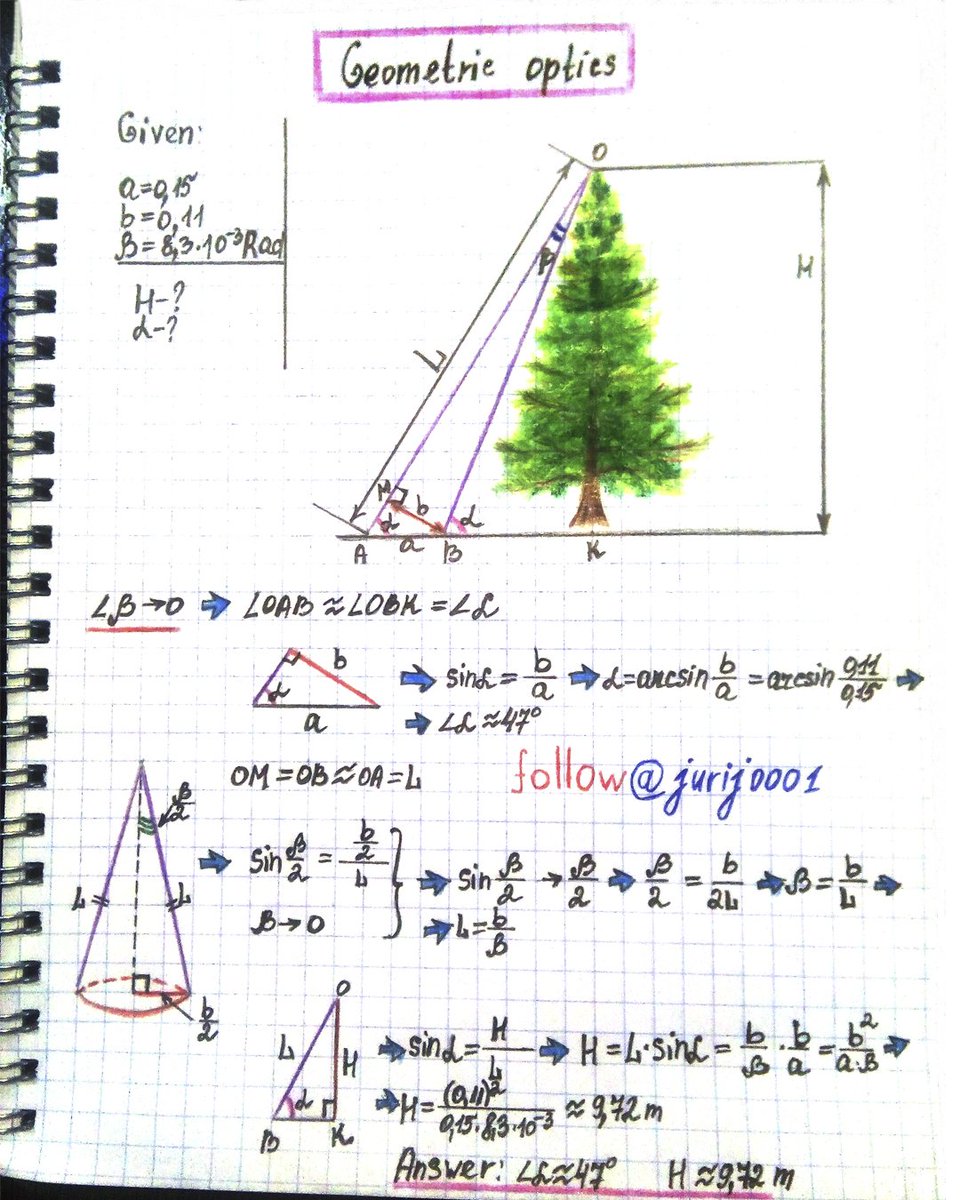 Geometric optics
Given:
a=0,15
b=0,11
β=8,3·10⁻³Rad
H-?
α-?
O
β
H
L
M
b
α
α
A
a
B
K
∠β→0 ⇒ ∠OAB≈∠OBK=∠α
b
α
a
⇒ sinα=b/a ⇒ α=arcsin b/a = arcsin 0,11/0,15 ⇒
⇒ ∠α≈47°
OM=OB≈OA=L
follow@jurij0001
β/2
L
L
b/2
⇒ sin β/2 = (b/2)/L
β→0
⇒ sin β/2 → β/2 ⇒ β/2 = b/2L ⇒ β=b/L ⇒
⇒ L=b/β
O
L
H
α
B
K
⇒ sinα=H/L ⇒ H=L·sinα=b/β·b/a=b²/a·β ⇒
⇒ H=(0,11)²/0,15·8,3·10⁻³ ≈9,72m
Answer: ∠α≈47° H≈9,72m